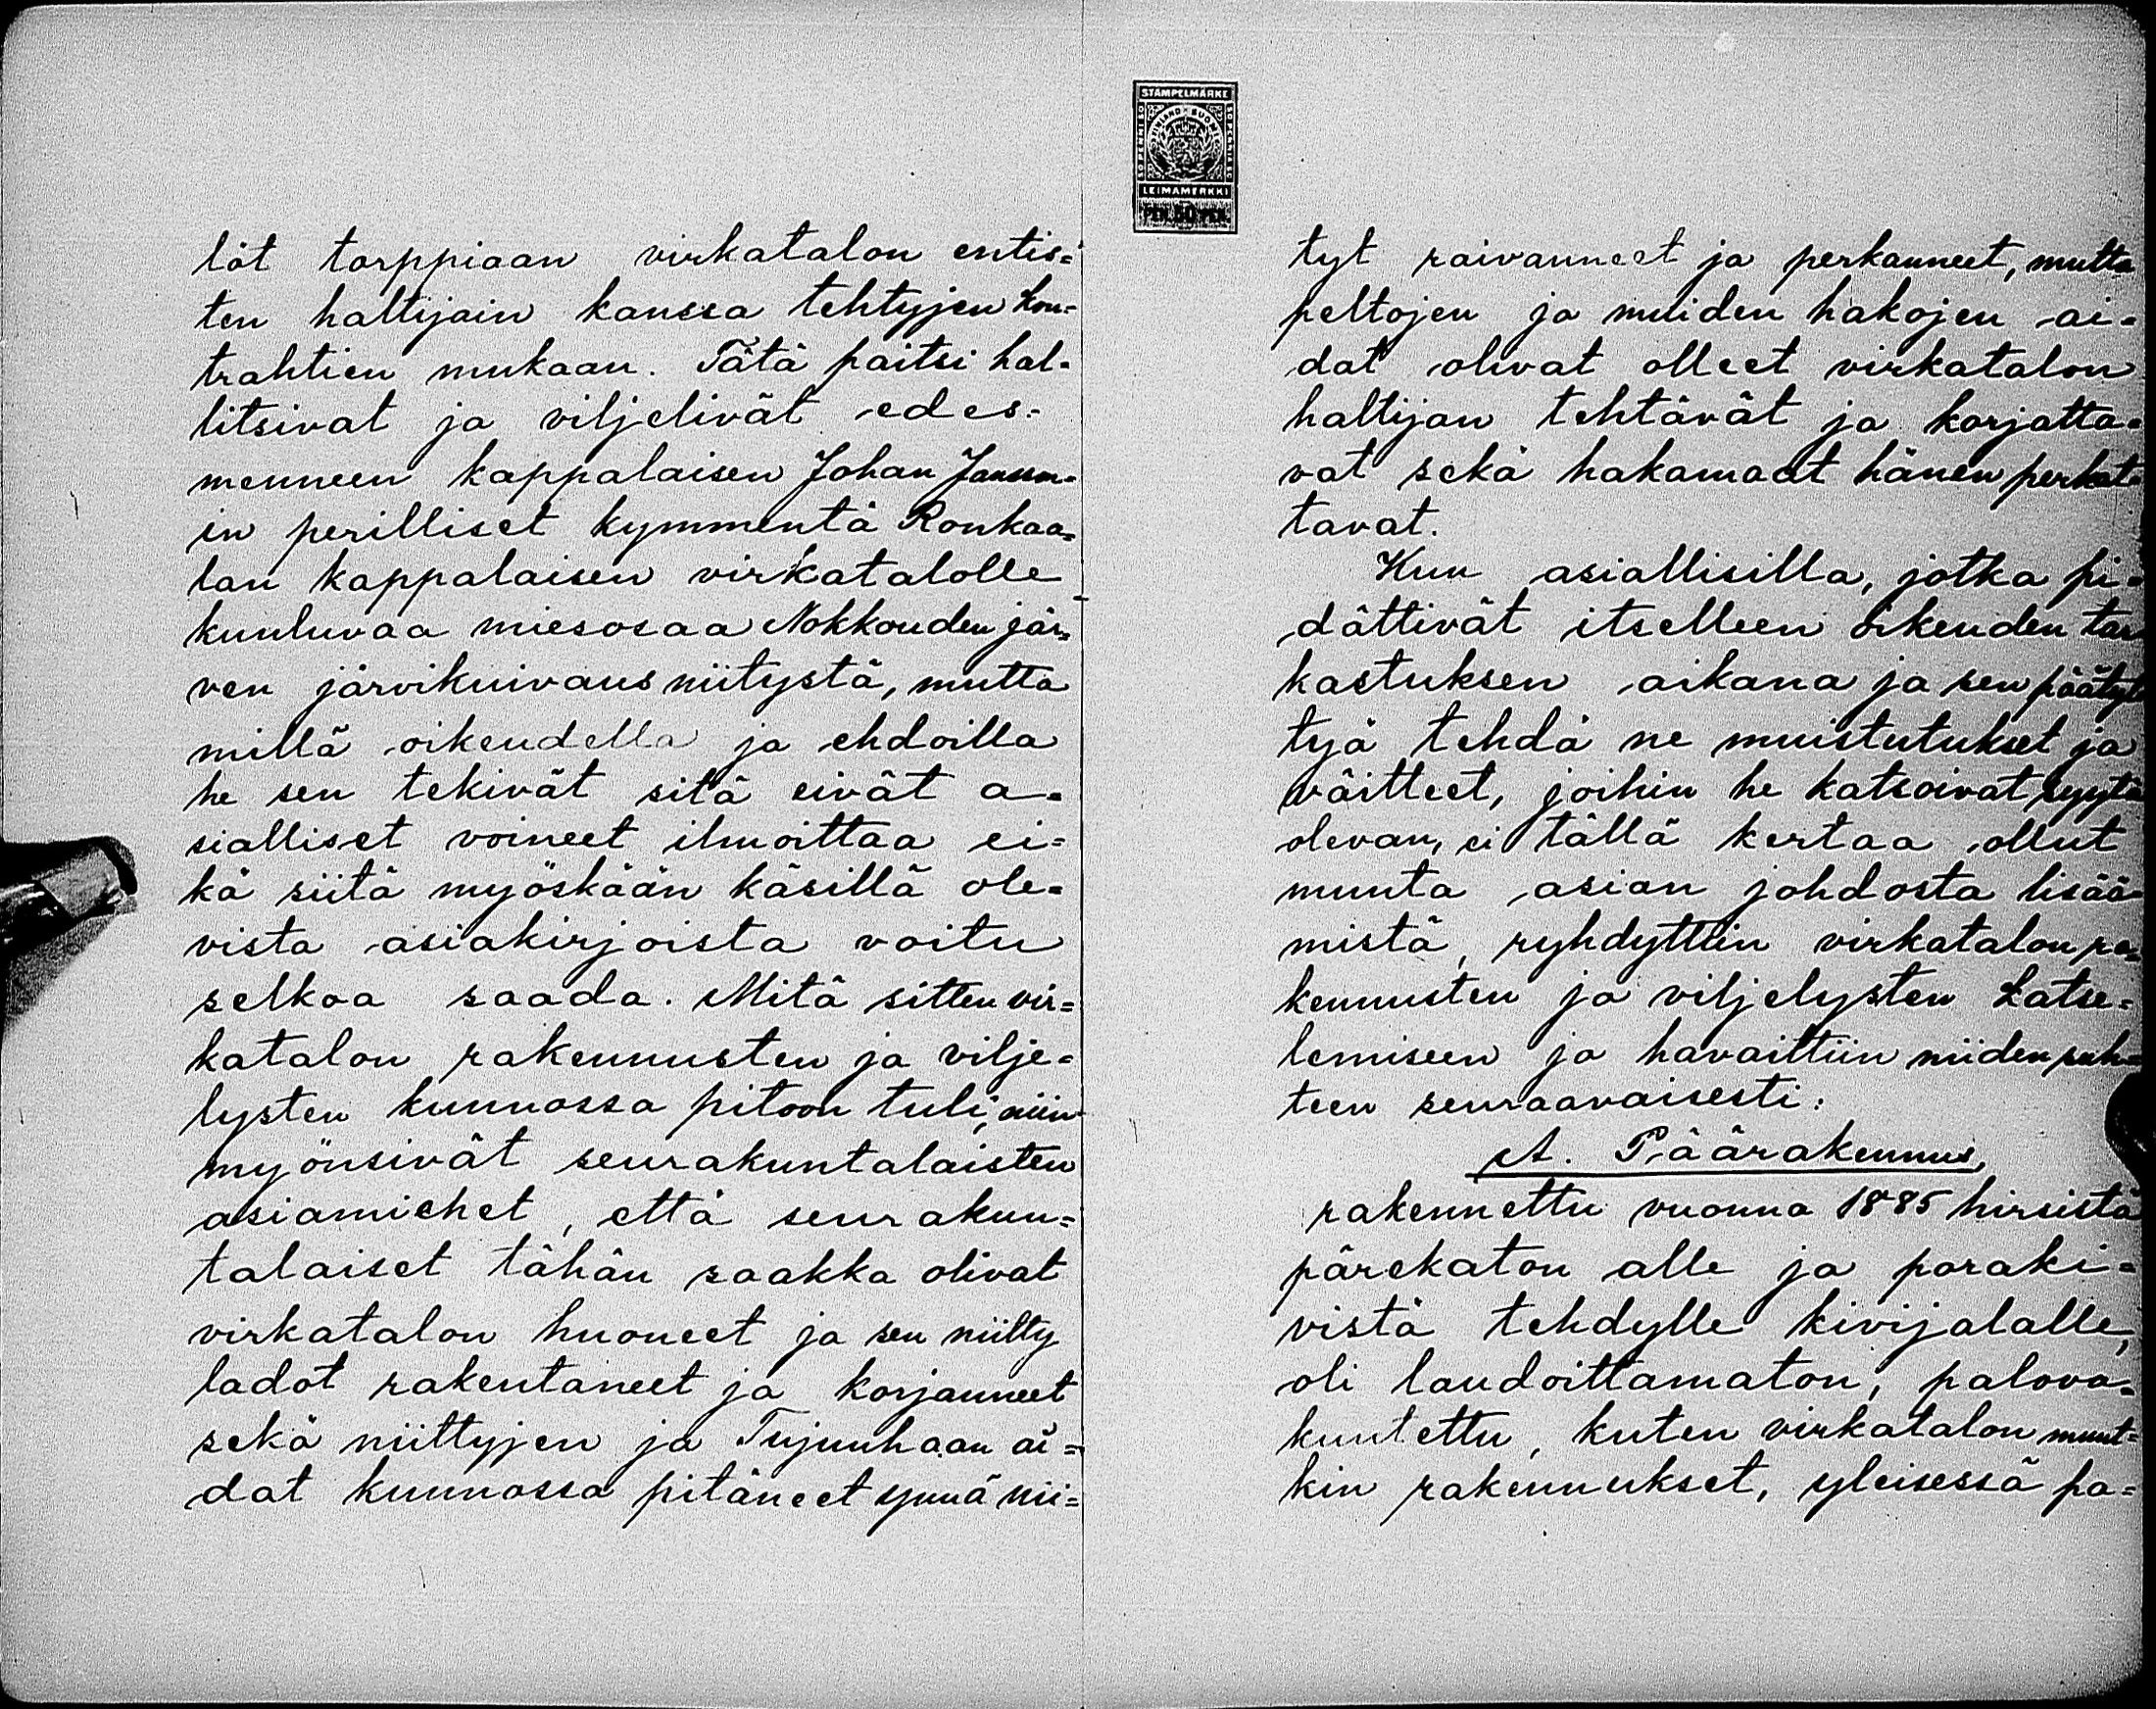 löt torppiaan virkatalon entis=
ten haltijain kanssa tehtyjen kon=
trahtien mukaan. Tätä paitsi hal=
litsivat ja viljelivät edes=
menneen kappalaisen Johan
in perilliset kymmentä Ronkaa=
lan kappalaisen virkatalolle
kuuluvaa miesosaa Nokkouden jär=
ven järvikuivausniitystä, mutta
millä oikeudella ja ehdoilla
he sen tekivät sitä eivät a=
sialliset voineet ilmoittaa ei=
kä siitä myöskään käsillä ole=
vista asiakirjoista voitu
selkoa saada. Mitä sitten vir=
katalon rakennusten ja vilje=
lysten kunnossa pitoon tuli, niin
myönsivät seurakuntalaisten
asiamiehet, että seurakun=
talaiset tähän saakka olivat
virkatalon huoneet ja sen niitty
ladot rakentaneet ja korjanneet
sekä niittyjen ja Tujunhaan ai=
dat kunnossa pitäneet ynnä nii=
STÄMPELMÄRKE
50 PENNI 50
FINLAND SUOMI
LEIMAMERKKI
PEN. 50 PEN.
tyt raivanneet ja perkanneet, mutta
peltojen ja muiden hakojen ai=
dat olivat olleet virkatalon
haltijan tehtävät ja korjatta=
vat sekä hakamaat hänen perkat=
tavat.
Kun asiallisilla, jotka pi=
dättivät itselleen oikeuden tar
kastuksen aikana ja sen päätyt
tyä tehdä ne muistutukset ja
väitteet, joihin he katsoivat syytä
olevan, ei tällä kertaa ollut
muuta asian johdosta lisää=
mistä, ryhdyttiin virkatalon ra=
kennusten ja viljelysten katse=
lemiseen ja havaittiin niiden suh=
teen seuraavaisesti:
A. Päärakennus,
rakennettu vuonna 1885 hirsistä
pärekaton alle ja poraki=
vistä tehdylle kivijalalle,
oli laudoittamaton, palova=
kuutettu, kuten virkatalon muut=
kin rakennukset, yleisessä pa=